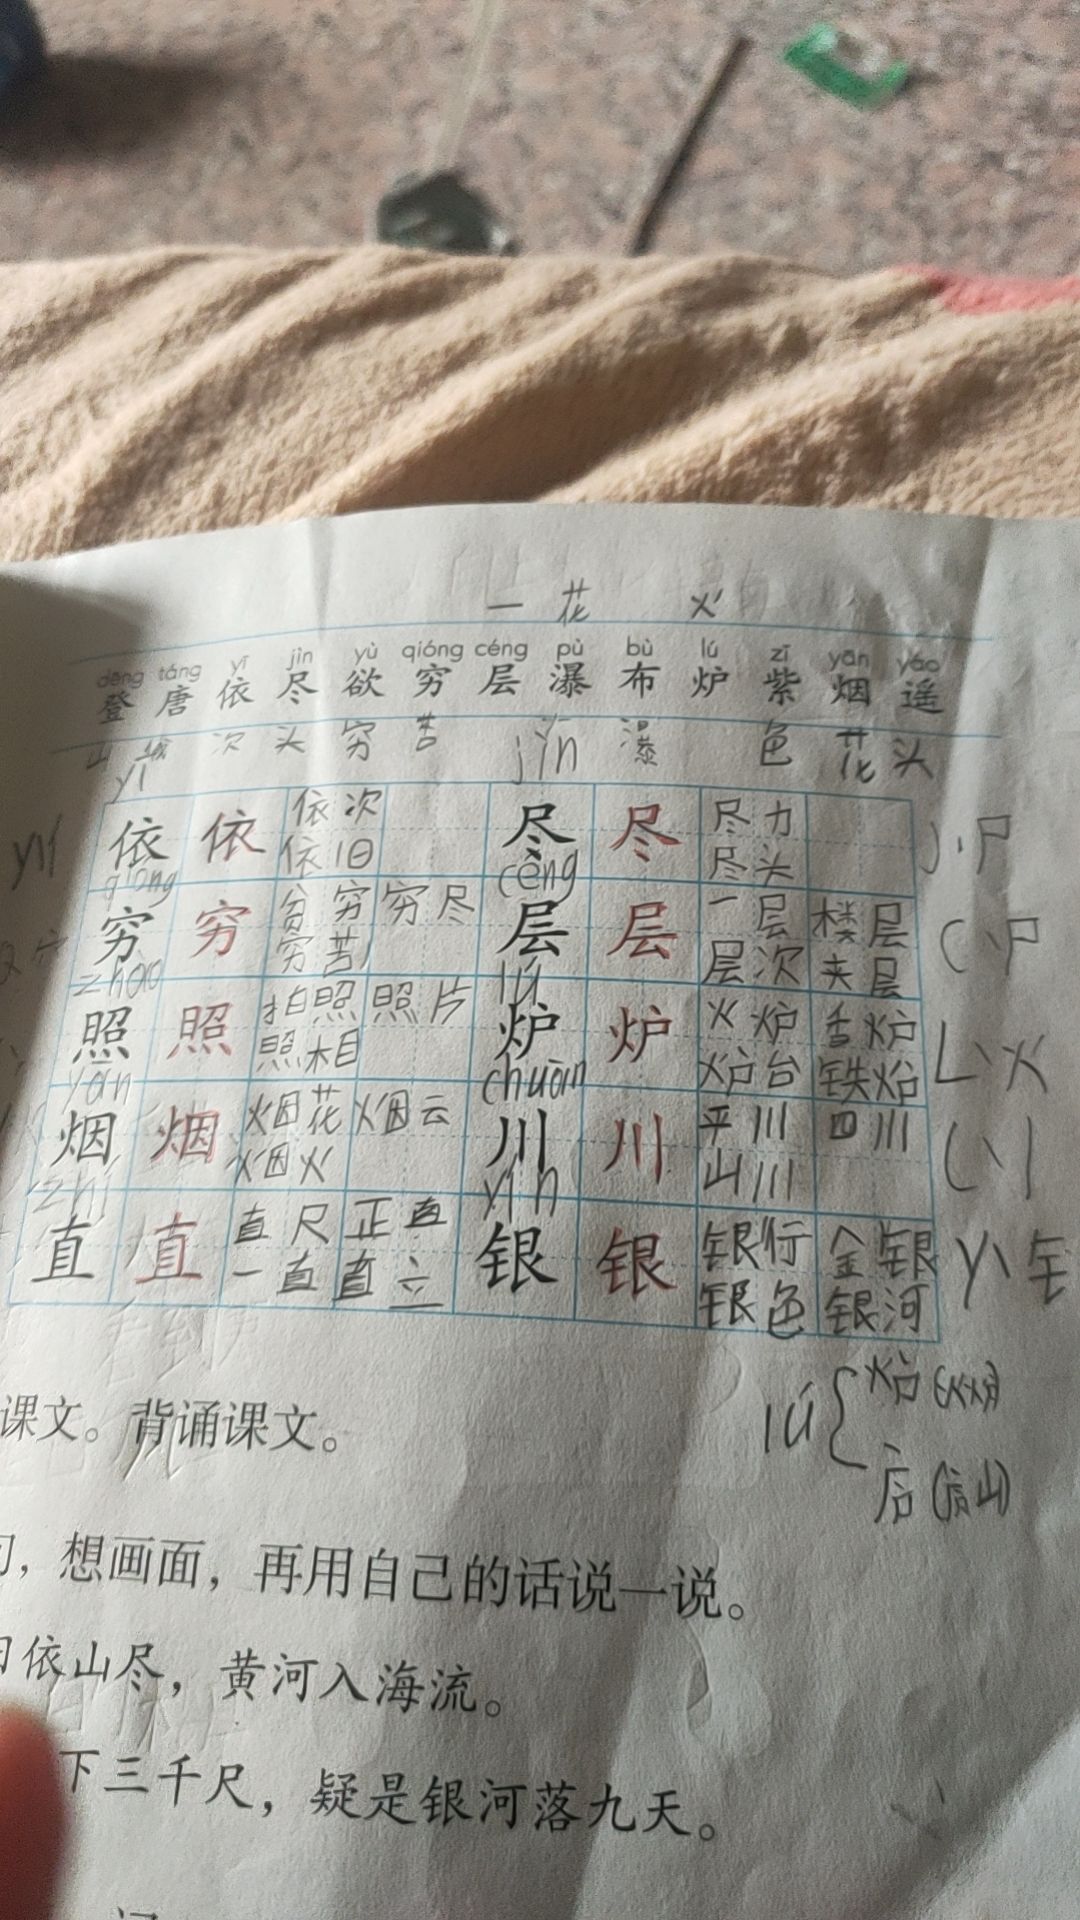 一 花 火
dēng táng yī jìn yù qióng céng pù bù lú zǐ yān yáo
登 唐 依 尽 欲 穷 层 瀑 布 炉 紫 烟 遥
山 城 次 头 穷 苦 瀑 色 花 头
yī jìn
依 依 依次 尽 尽 尽力
依旧 尽头
qióng céng
穷 穷 贫穷 穷尽 层 层 一层 楼层
穷苦 层次 夹层
zhào lú
照 照 拍照 照片 炉 炉 火炉 香炉
照相 炉台 铁炉
yān chuān
烟 烟 烟花 烟云 川 川 平川 四川
烟火 山川
zhí yín
直 直 直尺 正直 银 银 银行 金银
一直 直立 银色 银河
lú
课文。背诵课文。
，想画面，再用自己的话说一说。
依山尽，黄河入海流。
下三千尺，疑是银河落九天。